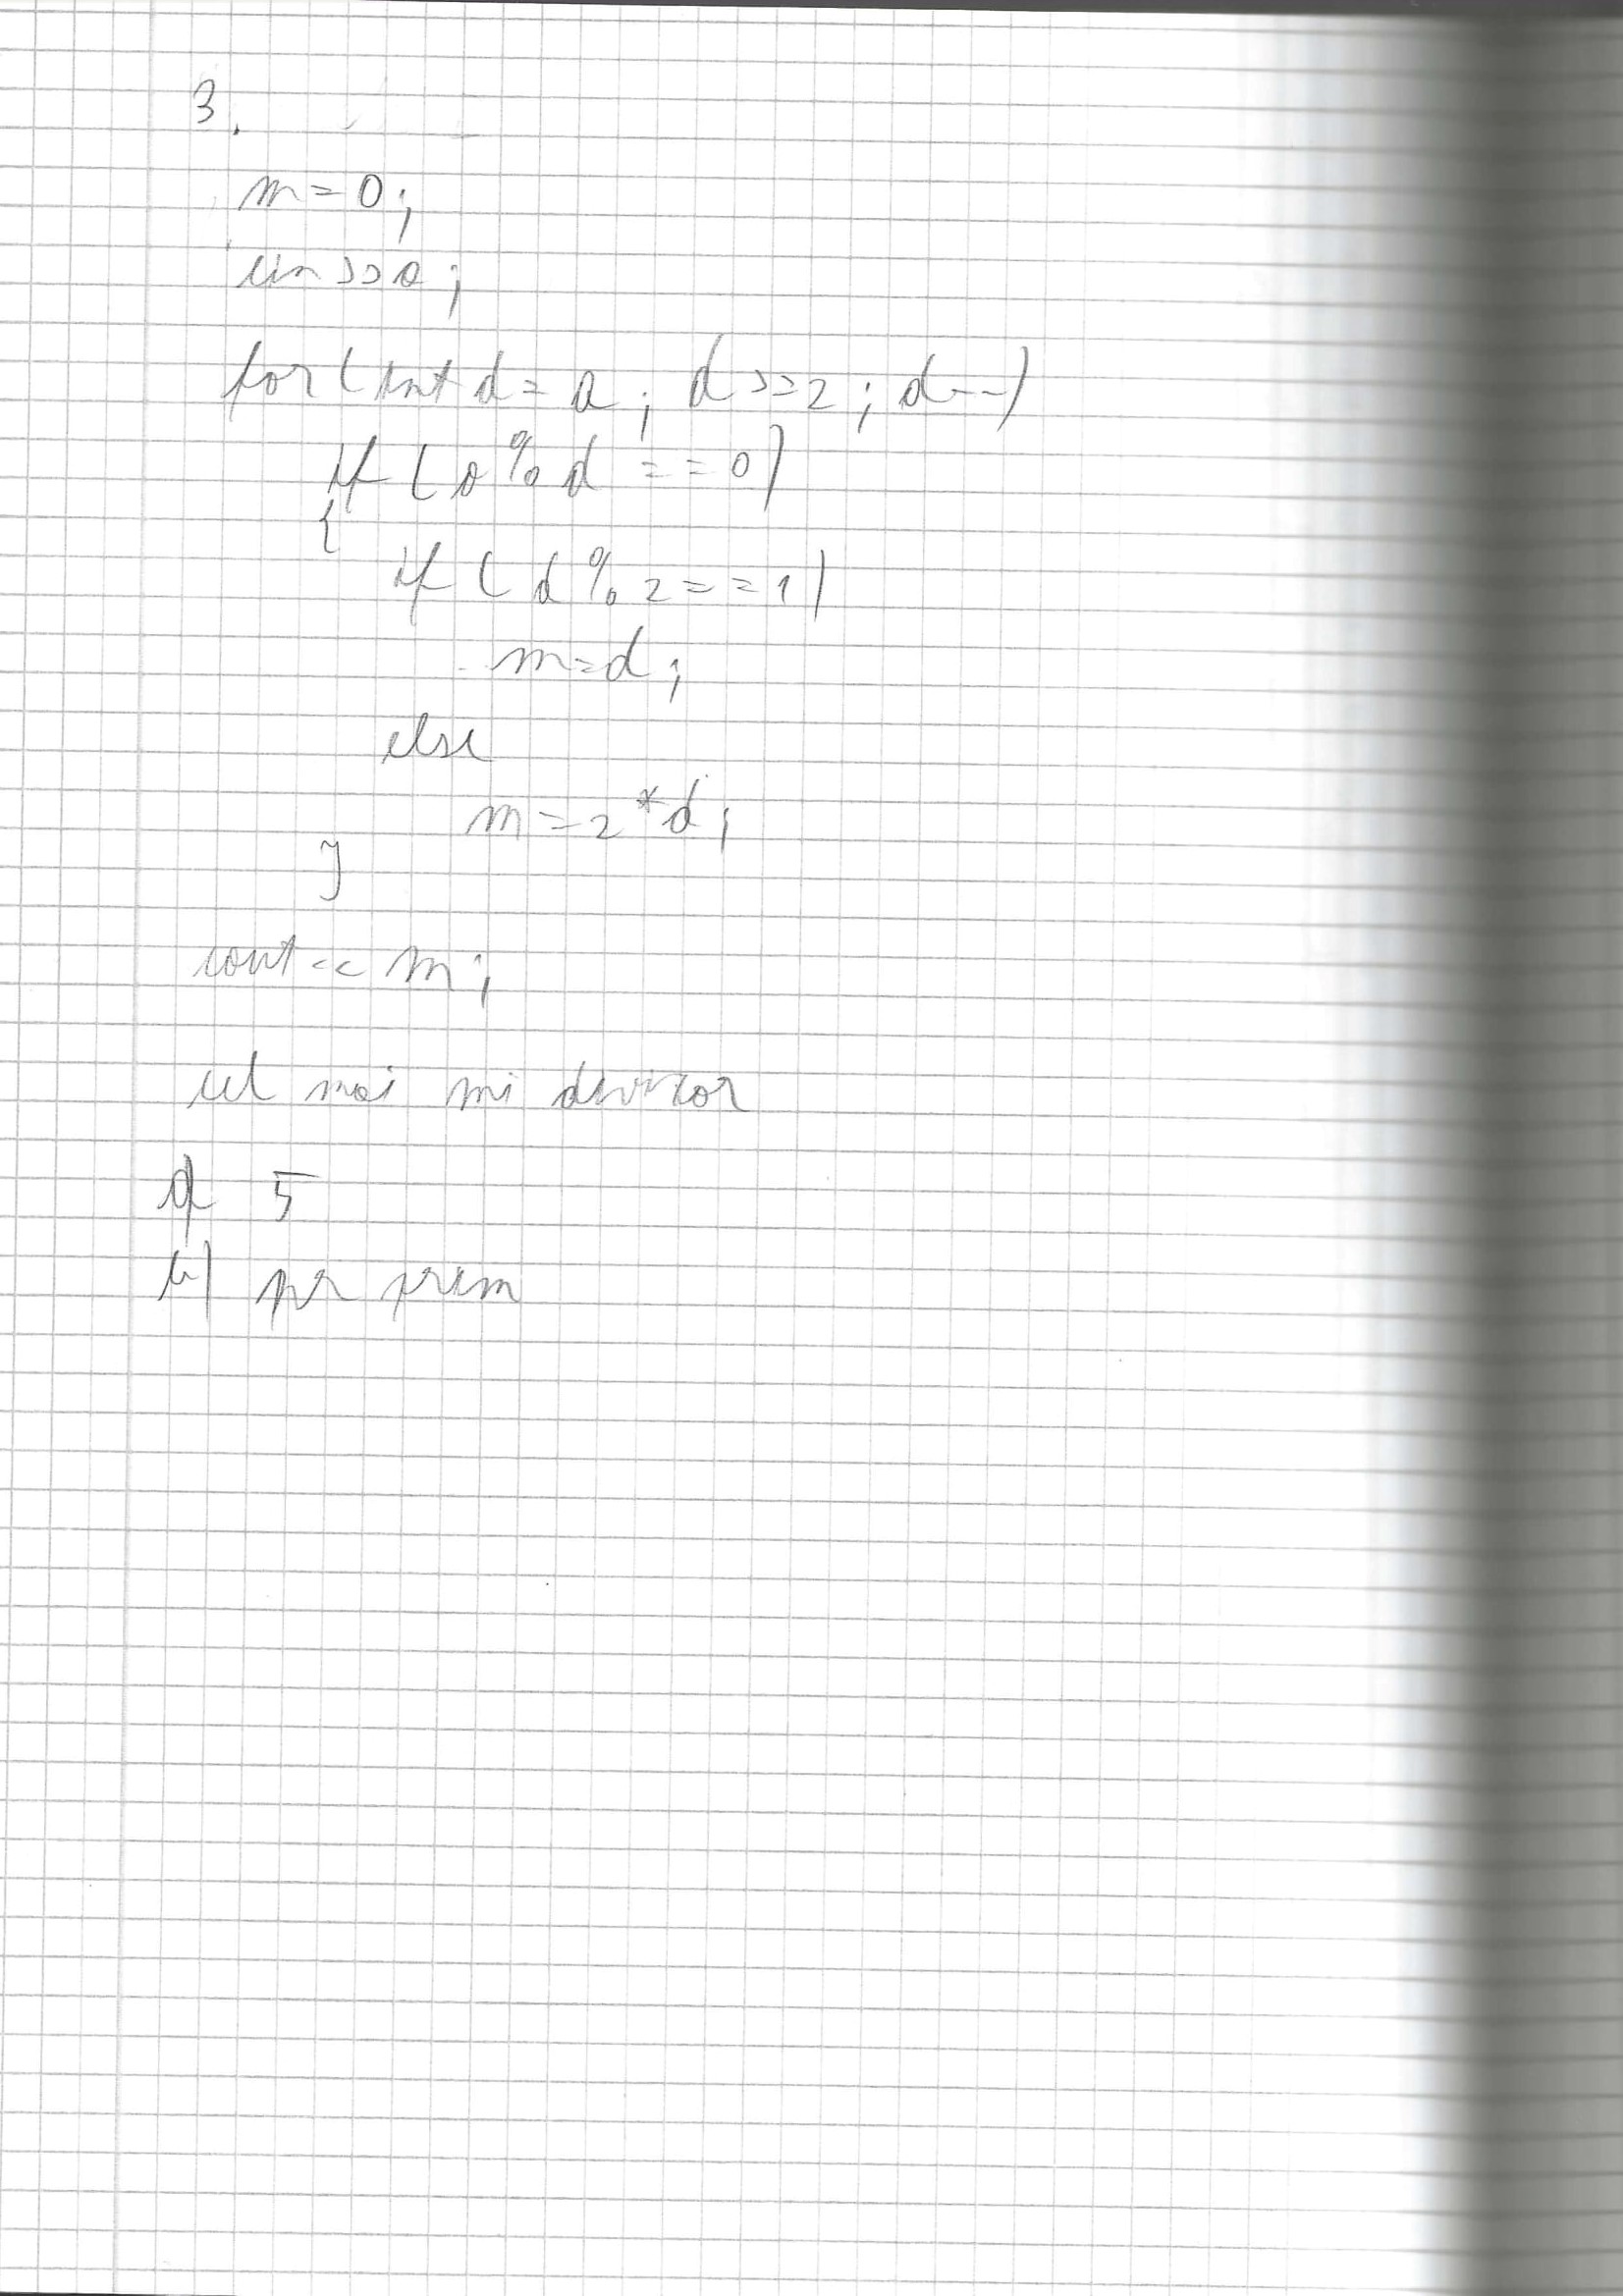 3.
m=0;
cin>>a;
for(int d=a; d>=2; d--)
if (a%d==0)
{
if (d%2==1)
m=d;
else
m=2*d;
}
cout<<m;
cel mai mi divizor
a) 5
b) pr prim